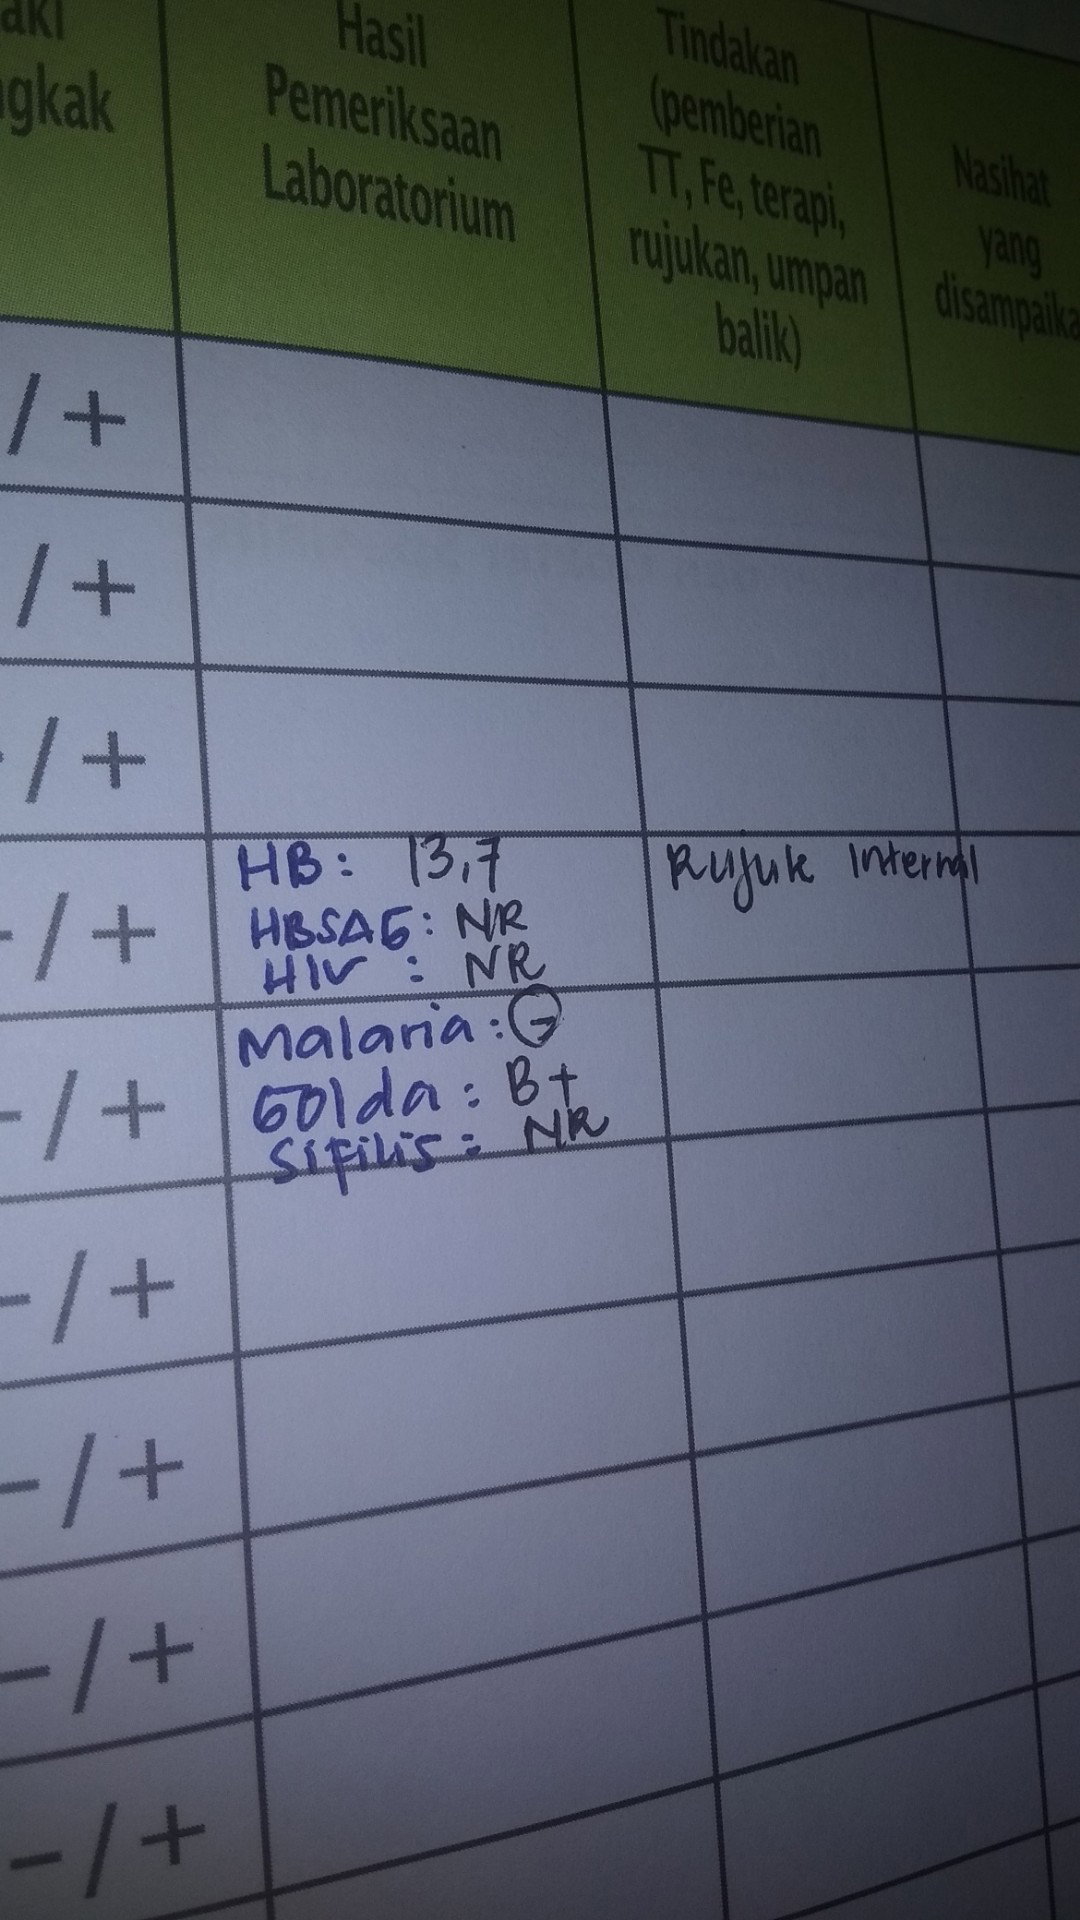 aki
gkak
Hasil
Pemeriksaan
Laboratorium
Tindakan
(pemberian
TT, Fe, terapi,
rujukan, umpan
balik)
Nasihat
yang
disampaika
/ +
/ +
- / +
HB : 13,7
HBSAG : NR
HIV : NR
Rujuk Internal
- / +
Malaria : (-)
Golda : B+
Sifilis : NR
- / +
- / +
- / +
- / +
- / +